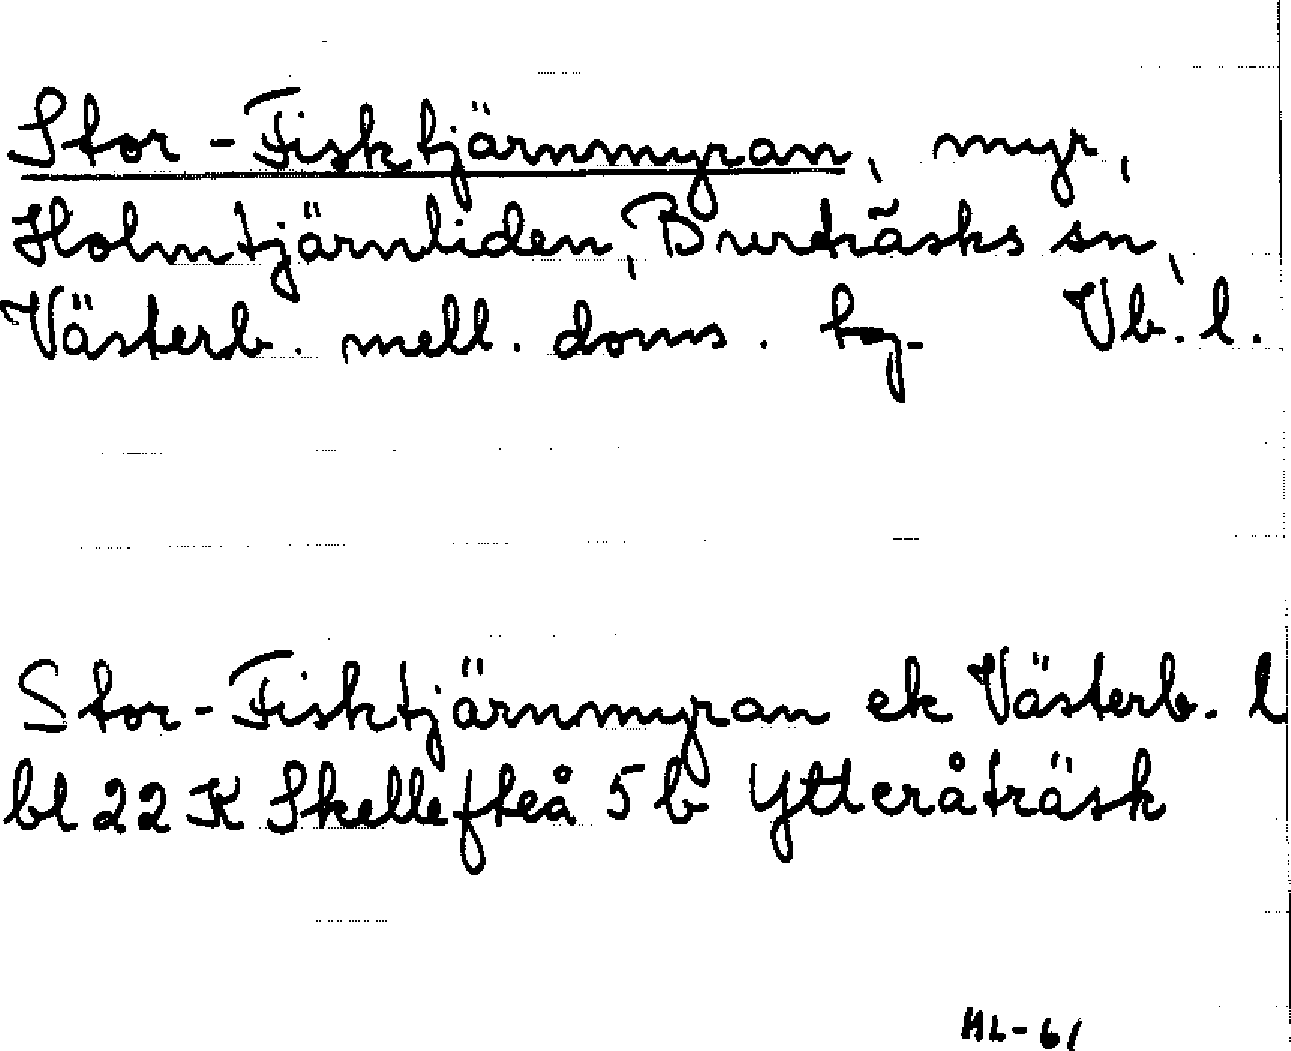 Stor-Fisktjärnmyran, myr,
Holmtjärnliden, Burträsks sn,
Västerb. mell. doms. tg. Vb. l.
Stor-Fisktjärnmyran ek Västerb. l
bl 22 K Skellefteå 5 b Ytteråträsk
ML-61